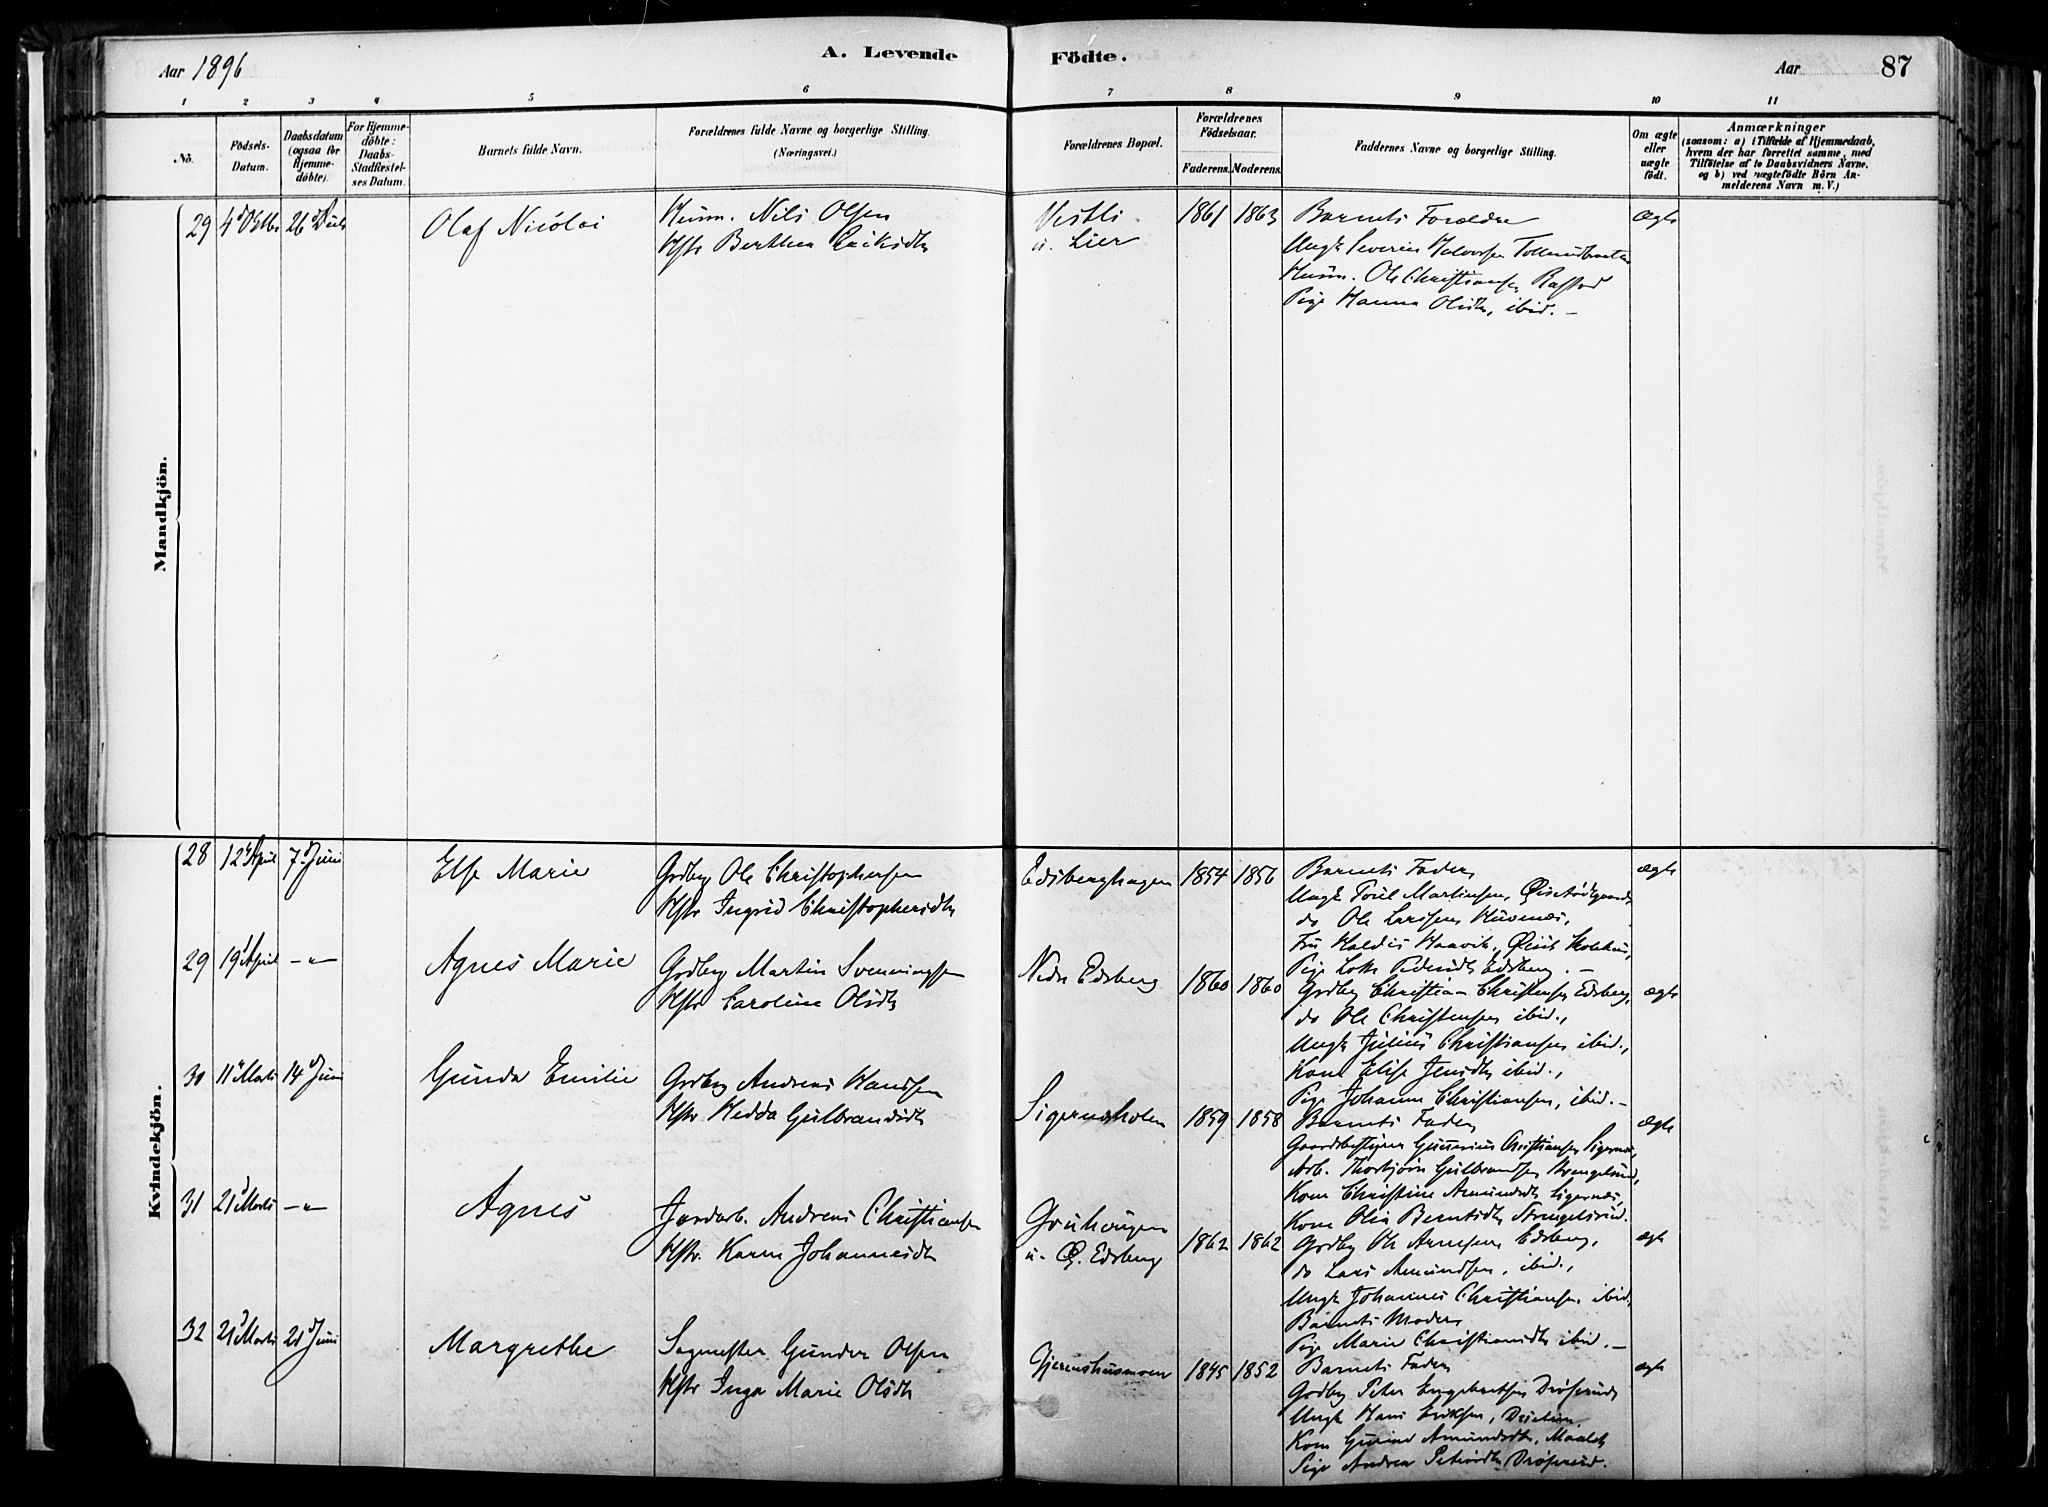 Aar 1896
A. Levende
Födte.
Aar
87
1 2 3 4 5 6 7 8 9 10 11
No.
Födsels-
Datum.
Daabsdatum
(ogsaa for
Hjemme-
döbte).
For Hjemme-
döbte:
Daabs-
Stadfæstel-
ses Datum.
Barnets fulde Navn.
Forældrenes fulde Navne og borgerlige Stilling.
(Næringsvei.)
Forældrenes Bopæl.
Forældrenes
Födselsaar.
Faderens. Moderens.
Faddernes Navne og borgerlige Stilling.
Om ægte
eller
uægte
födt.
Anmærkninger
(saasom: a) i Tilfælde af Hjemmedaab,
hvem der har forrettet samme, med
Tilföielse af to Daabsvidners Navne,
og b) ved uægtefödte Börn An-
melderens Navn m. V.)
Mandkjön.
29
Olaf Nicolai
Husm. Nils Olsen
Berthea
Vestli
u. Lier
1861 1863
Barnets Forældre
Ungk Severin Halvorsen
Husm. Ole Christiansen Rastad
Pige Hanna Olsdtr, ibid. –
Ægte
Kvindekjön.
28 12 April 7 Juni
Else Marie
Grdbr Ole Christophersen
Hstr Ingrid Christophersdtr
Edsberghagen
1854 1856
Barnets Fader,
Ungk Martinsen,
do Ole Larssen
ægte
29 19 April –„–
Agnes Marie
Grdbr Martin Svenningsen
Hstr Caroline Olsdtr
Nedr Edsberg
1860 1860
Pige Pedersdtr Edsberg. –
Grdbr Christian Christensen Edsberg,
do Ole Christensen ibid.,
Ungk Julius Christiansen ibid.,
Kone Elise Jensdtr ibid.,
Pige Johanne Christiansen, ibid. –
ægte
30 11 Marts 14 Juni
Gunda Emilie
Grdbr Andreas Hansen
Hstr Hedda Gulbrandsdtr
Sigernesholen
1859 1858
Barnets Fader,
Gaardbestyrer Gunerius Christiansen Sigernes,
Arb. Thorbjörn Gulbrandsen
Kone Christine Amundsdtr Sigernes,
Kone Olia Berntsdtr
ægte
31 21 Marts –„–
Agnes
Jordarb. Andreas Christiansen
Hstr. Karen Johannesdtr
u. Ö. Edsberg
1862 1862
Grdbr Ole Arnesen Edsberg,
do Lars Amundsen, ibid.,
Ungk Johannes Christiansen ibid,
Barnets Moder
Pige Marie Christiansdtr ibid. –
ægte
32 21 Marts 21 Juni
Margrethe
Sagmester Gunder Olsen
Hstr Inga Marie Olsdtr
Gjermshusmoen
1845 1852
Barnets Fader,
Grdbr Peter Engebretsen
Ungk Hans Eriksen,
Kone Amundsdtr,
Pige Andrea
ægte